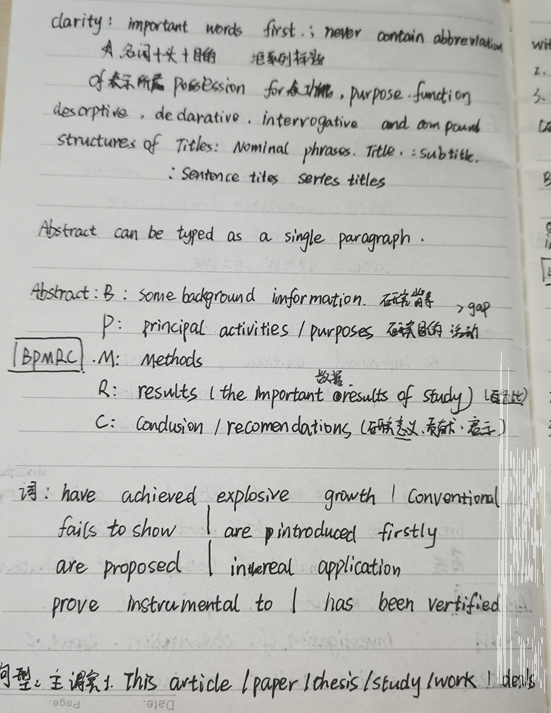 clarity: important words first.; never contain abbreviation
名词+大+目的 准系列标题
of表示所属 possession for表功能, purpose. function
descrptive, declarative. interrogative and compound
structures of Titles: Nominal phrases. Title.: subtitle.
: Sentence titles series titles
Abstract can be typed as a single paragraph.
Abstract: B: some background imformation. 研究背景 >gap
P: principal activities / purposes 研究目的 活动
BPMRC .M: Methods
数据.
R: results (the important results of study) (
C: condusion / recomendations (研究意义.贡献.启示.)
词: have achieved explosive growth | conventional
fails to show | are introduced firstly
are proposed | in real application
prove instrumental to | has been vertified
句型: 主谓宾 1. This article / paper / thesis / study / work | deals